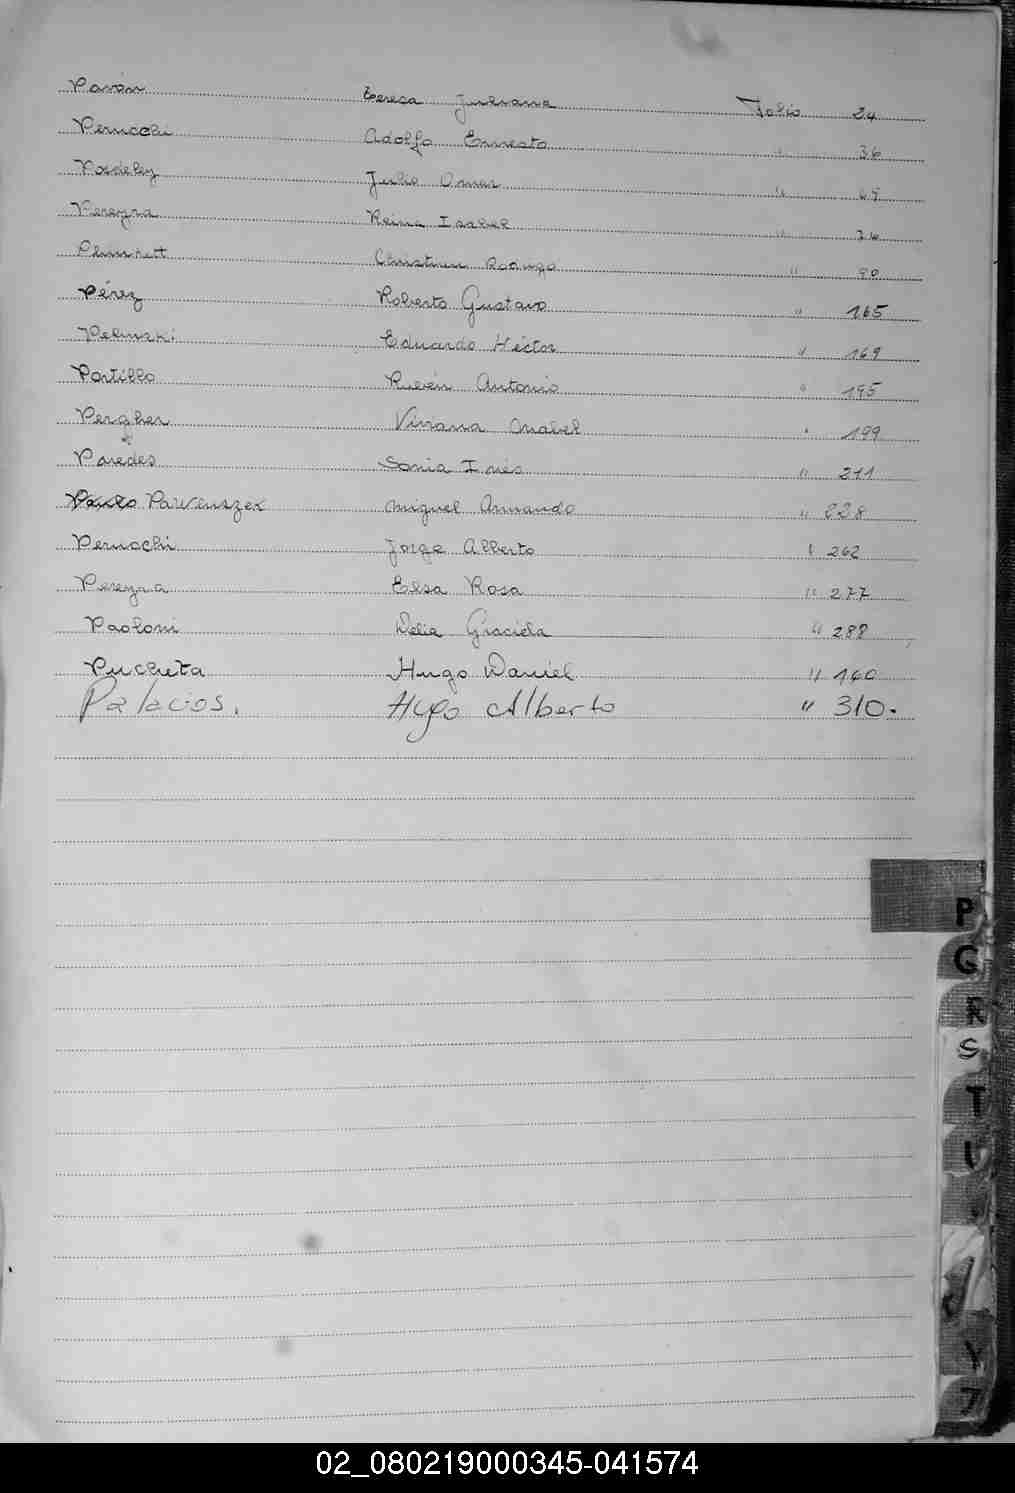 Pavón Teresa Juliana Folio 24
Perucchi Adolfo Ernesto " 36
Julio Omar "
Pereyra Reina Isabel "
Plunkett Christian Rodrigo " 90
Pérez Roberto Gustavo " 165
Eduardo Héctor " 169
Portillo Rubén Antonio " 195
Pergher Viviana Mabel " 199
Paredes Sonia Inés " 211
Pawluszek Miguel Armando " 228
Peruochi Jorge Alberto " 262
Pereyra Elsa Rosa " 277
Paoloni Delia Graciela " 288
Pucheta Hugo Daniel " 160
Palacios. Hugo Alberto " 310.
P
G
R
S
T
U
V
Y
Z
02_080219000345-041574